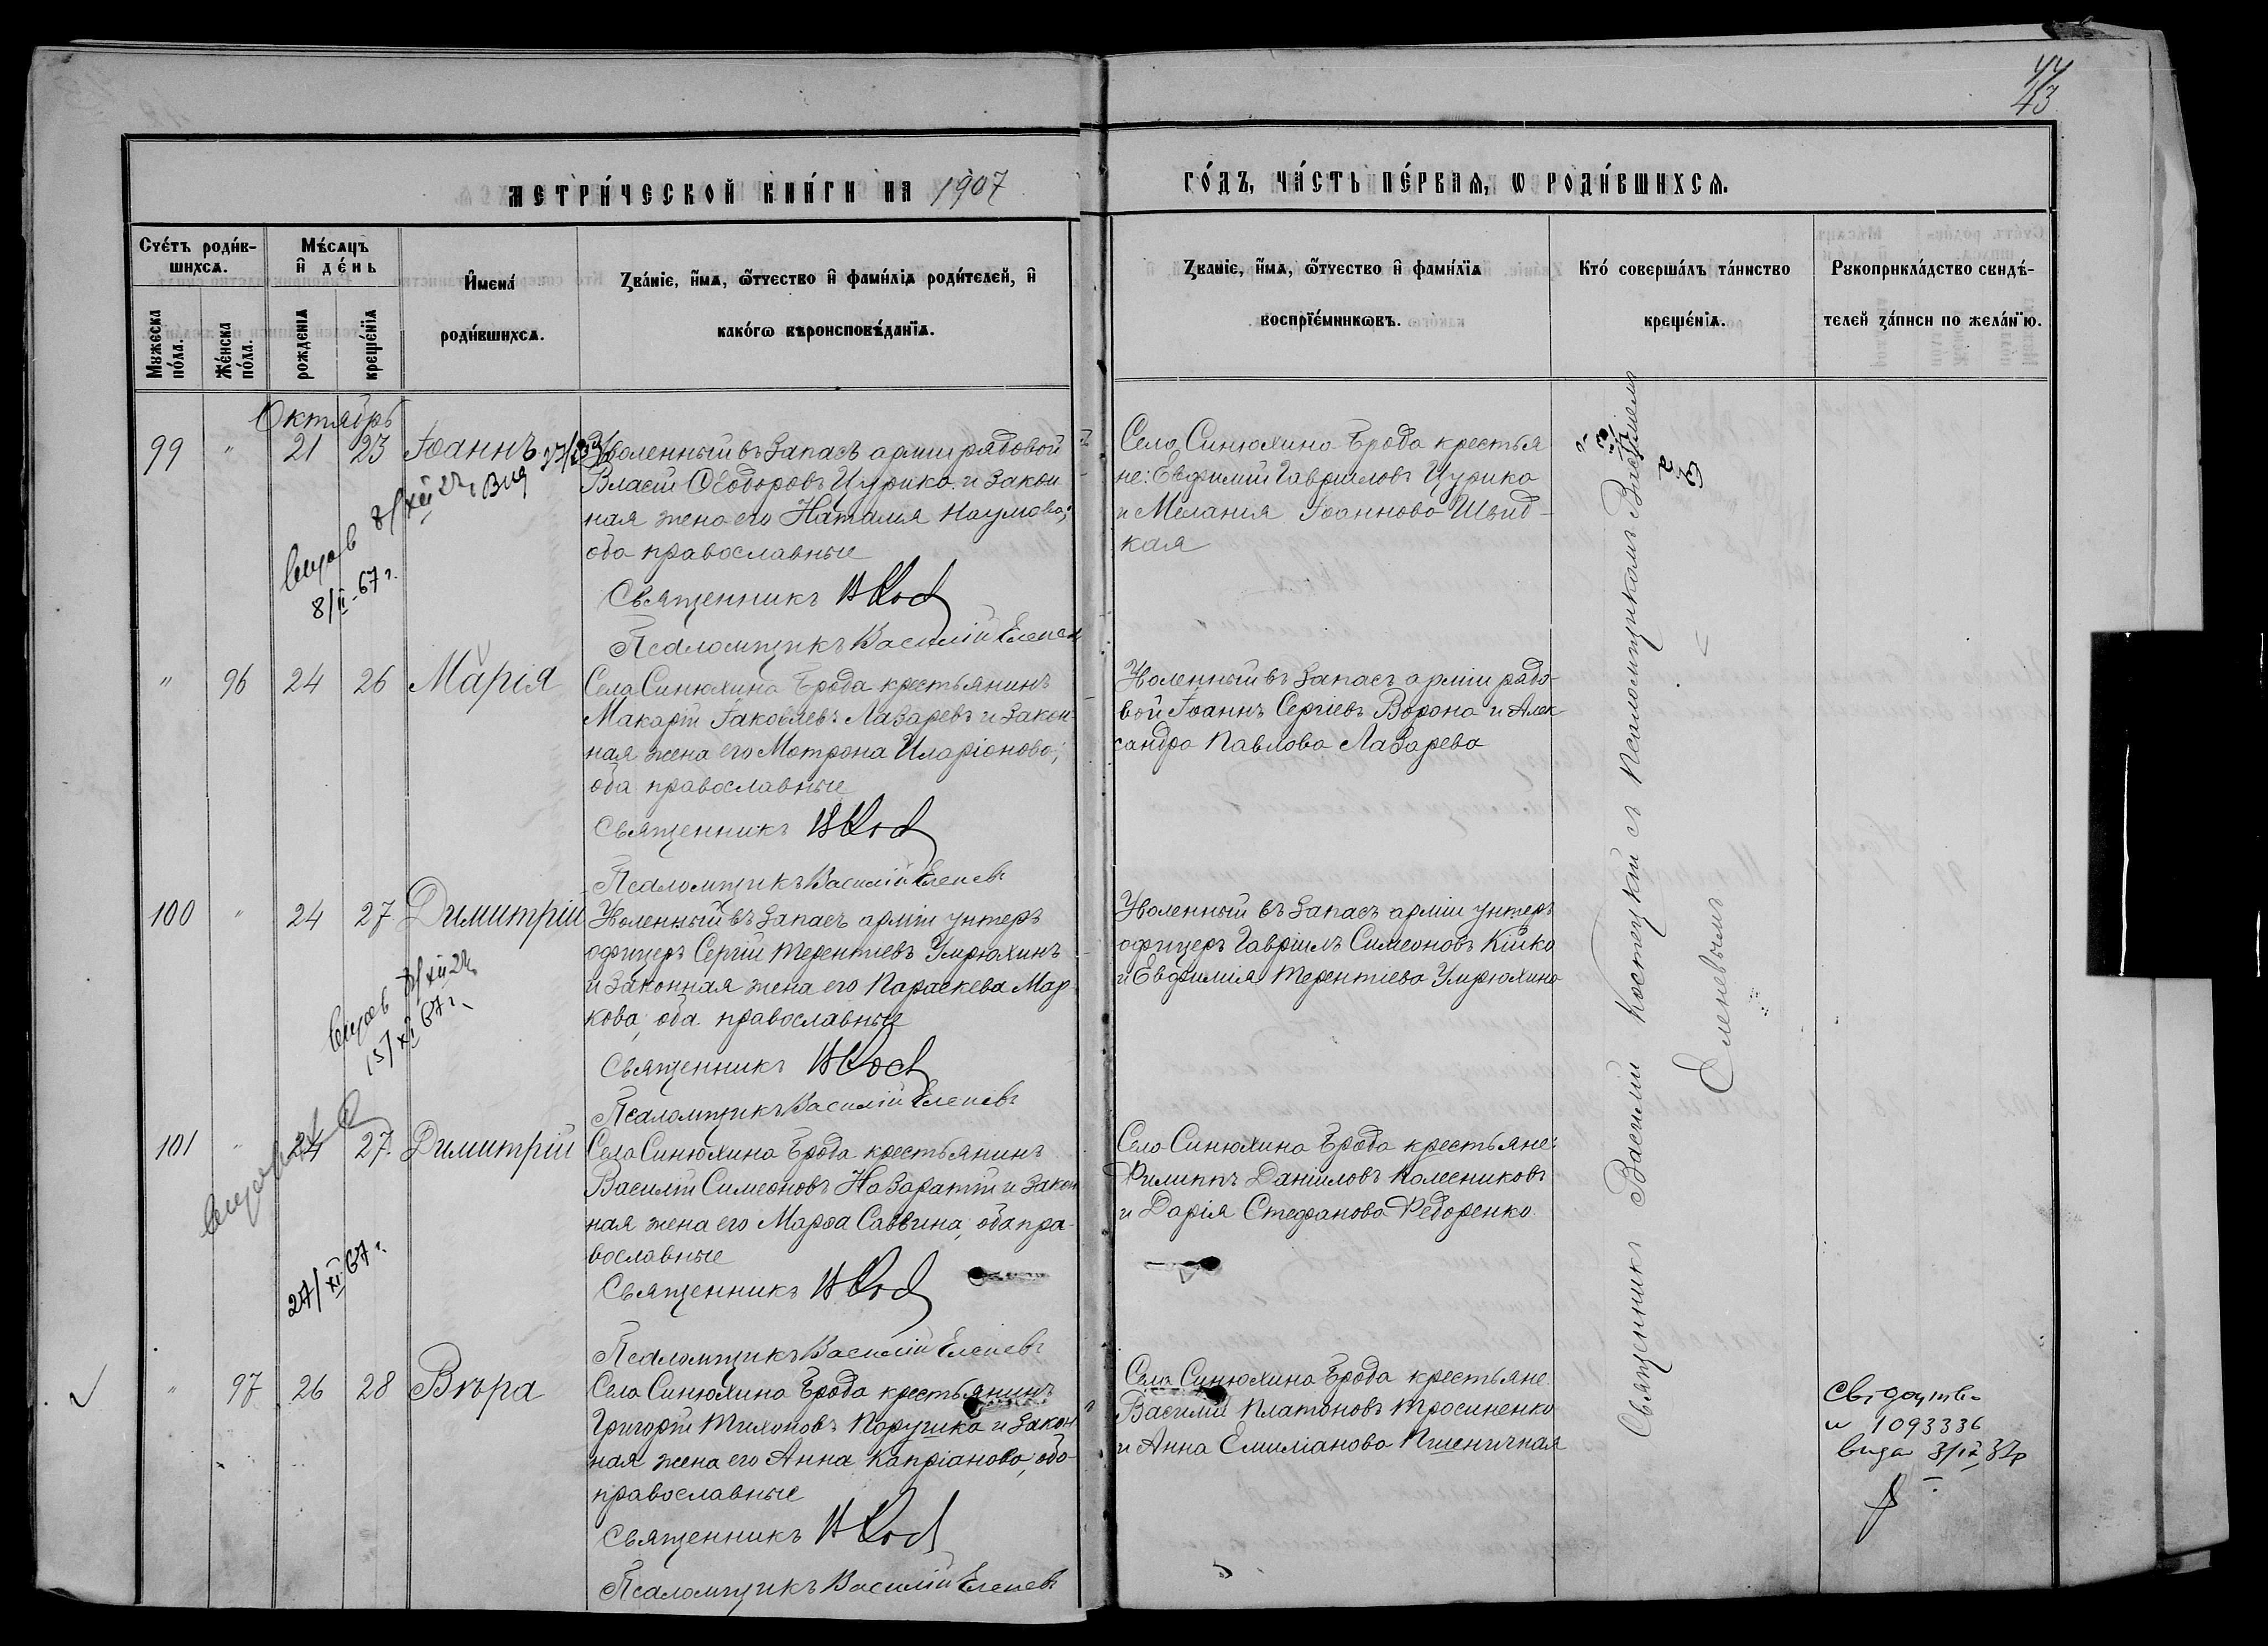 43
МЕТРИ́ЧЕСКОЙ КНИ́ГИ НА 1907
ГО́ДЪ, ЧА́СТЬ ПЕ́РВАЯ, Ѡ РОДИ́ВШИХСЯ.
Счетъ роди́в-
шихсѧ.
Мужеска по́ла.
Же́нска по́ла.
Мѣ́сѧцъ
и҆ де́нь
рожденїѧ
креще́нїѧ
И҆мена́
роди́вшихсѧ.
Зва́нїе, и҆́мѧ, ѻ҆́тчество и҆ фами́лїѧ роди́телей, и҆
како́гѡ вѣроисповѣ́данїѧ.
Зва́нїе, и҆́мѧ, ѻ҆́тчество и҆ фами́лїѧ
воспрїе́мникѡвъ.
Кто́ соверша́лъ та́инство
креще́нїѧ.
Рукоприкла́дство свидѣ́-
телей за́писи по жела́нїю.
Октябрь
99 " 21 23 Іоаннъ
Уволенный въ запасъ арміи рядовой
Власій Ѳеодоровъ Цурика и закон
ная жена его Наталія Наумова;
оба православные
Священникъ
Псаломщикъ Василій Еленев
Села Синюхина Брода крестья
не: Евфимій Гавріиловъ Цурика
и Меланія Іоаннова Швид-
кая
8/II-67 г.
" 96 24 26 Марія
Села Синюхина Брода крестьянинъ
Макарій Іаковлевъ Лазаревъ и закон-
ная жена его Мотрона Иларіонова;
оба православные
Священникъ
Псаломщикъ Василій Еленевъ
Уволенный въ запасъ арміи рядо-
вой Іоаннъ Сергіевъ Ворона и Алек
сандра Павлова Лазарева
100 " 24 27 Димитрій
Уволенный въ запасъ арміи унтеръ
офицеръ Сергій Терентіевъ Умрюхинъ
и законная жена его Параскева Мар
кова, оба православные
Священникъ
Псаломщикъ Василій Еленевъ
Уволенный въ запасъ арміи унтеръ
офицеръ Гавріилъ Симеоновъ Кійко
и Евфимія Терентіева Умрюхина
15/XI 67 г.
101 " 24 27 Димитрій
Села Синюхина Брода крестьянинъ
Василій Симеоновъ Назаратій и закон
ная жена его Марѳа Саввина, оба пра-
вославные
Священникъ
Псаломщикъ Василій Еленевъ
Села Синюхина Брода крестьяне:
Филиппъ Даніиловъ Колесниковъ
и Дарія Стефанова Федоренко
27/XI 67 г.
" 97 26 28 Вѣра
Села Синюхина Брода крестьянинъ
Григорій Тихоновъ Поручика и закон
ная жена его Анна Капріанова, оба
православные
Священникъ
Псаломщикъ Василій Еленевъ
Села Синюхина Брода крестьяне
Василій Платоновъ Тросиненко
и Анна Емиліанова Пшеничная
Священникъ Василій Костецкій съ псаломщикомъ Василіемъ
Еленевымъ
1093336